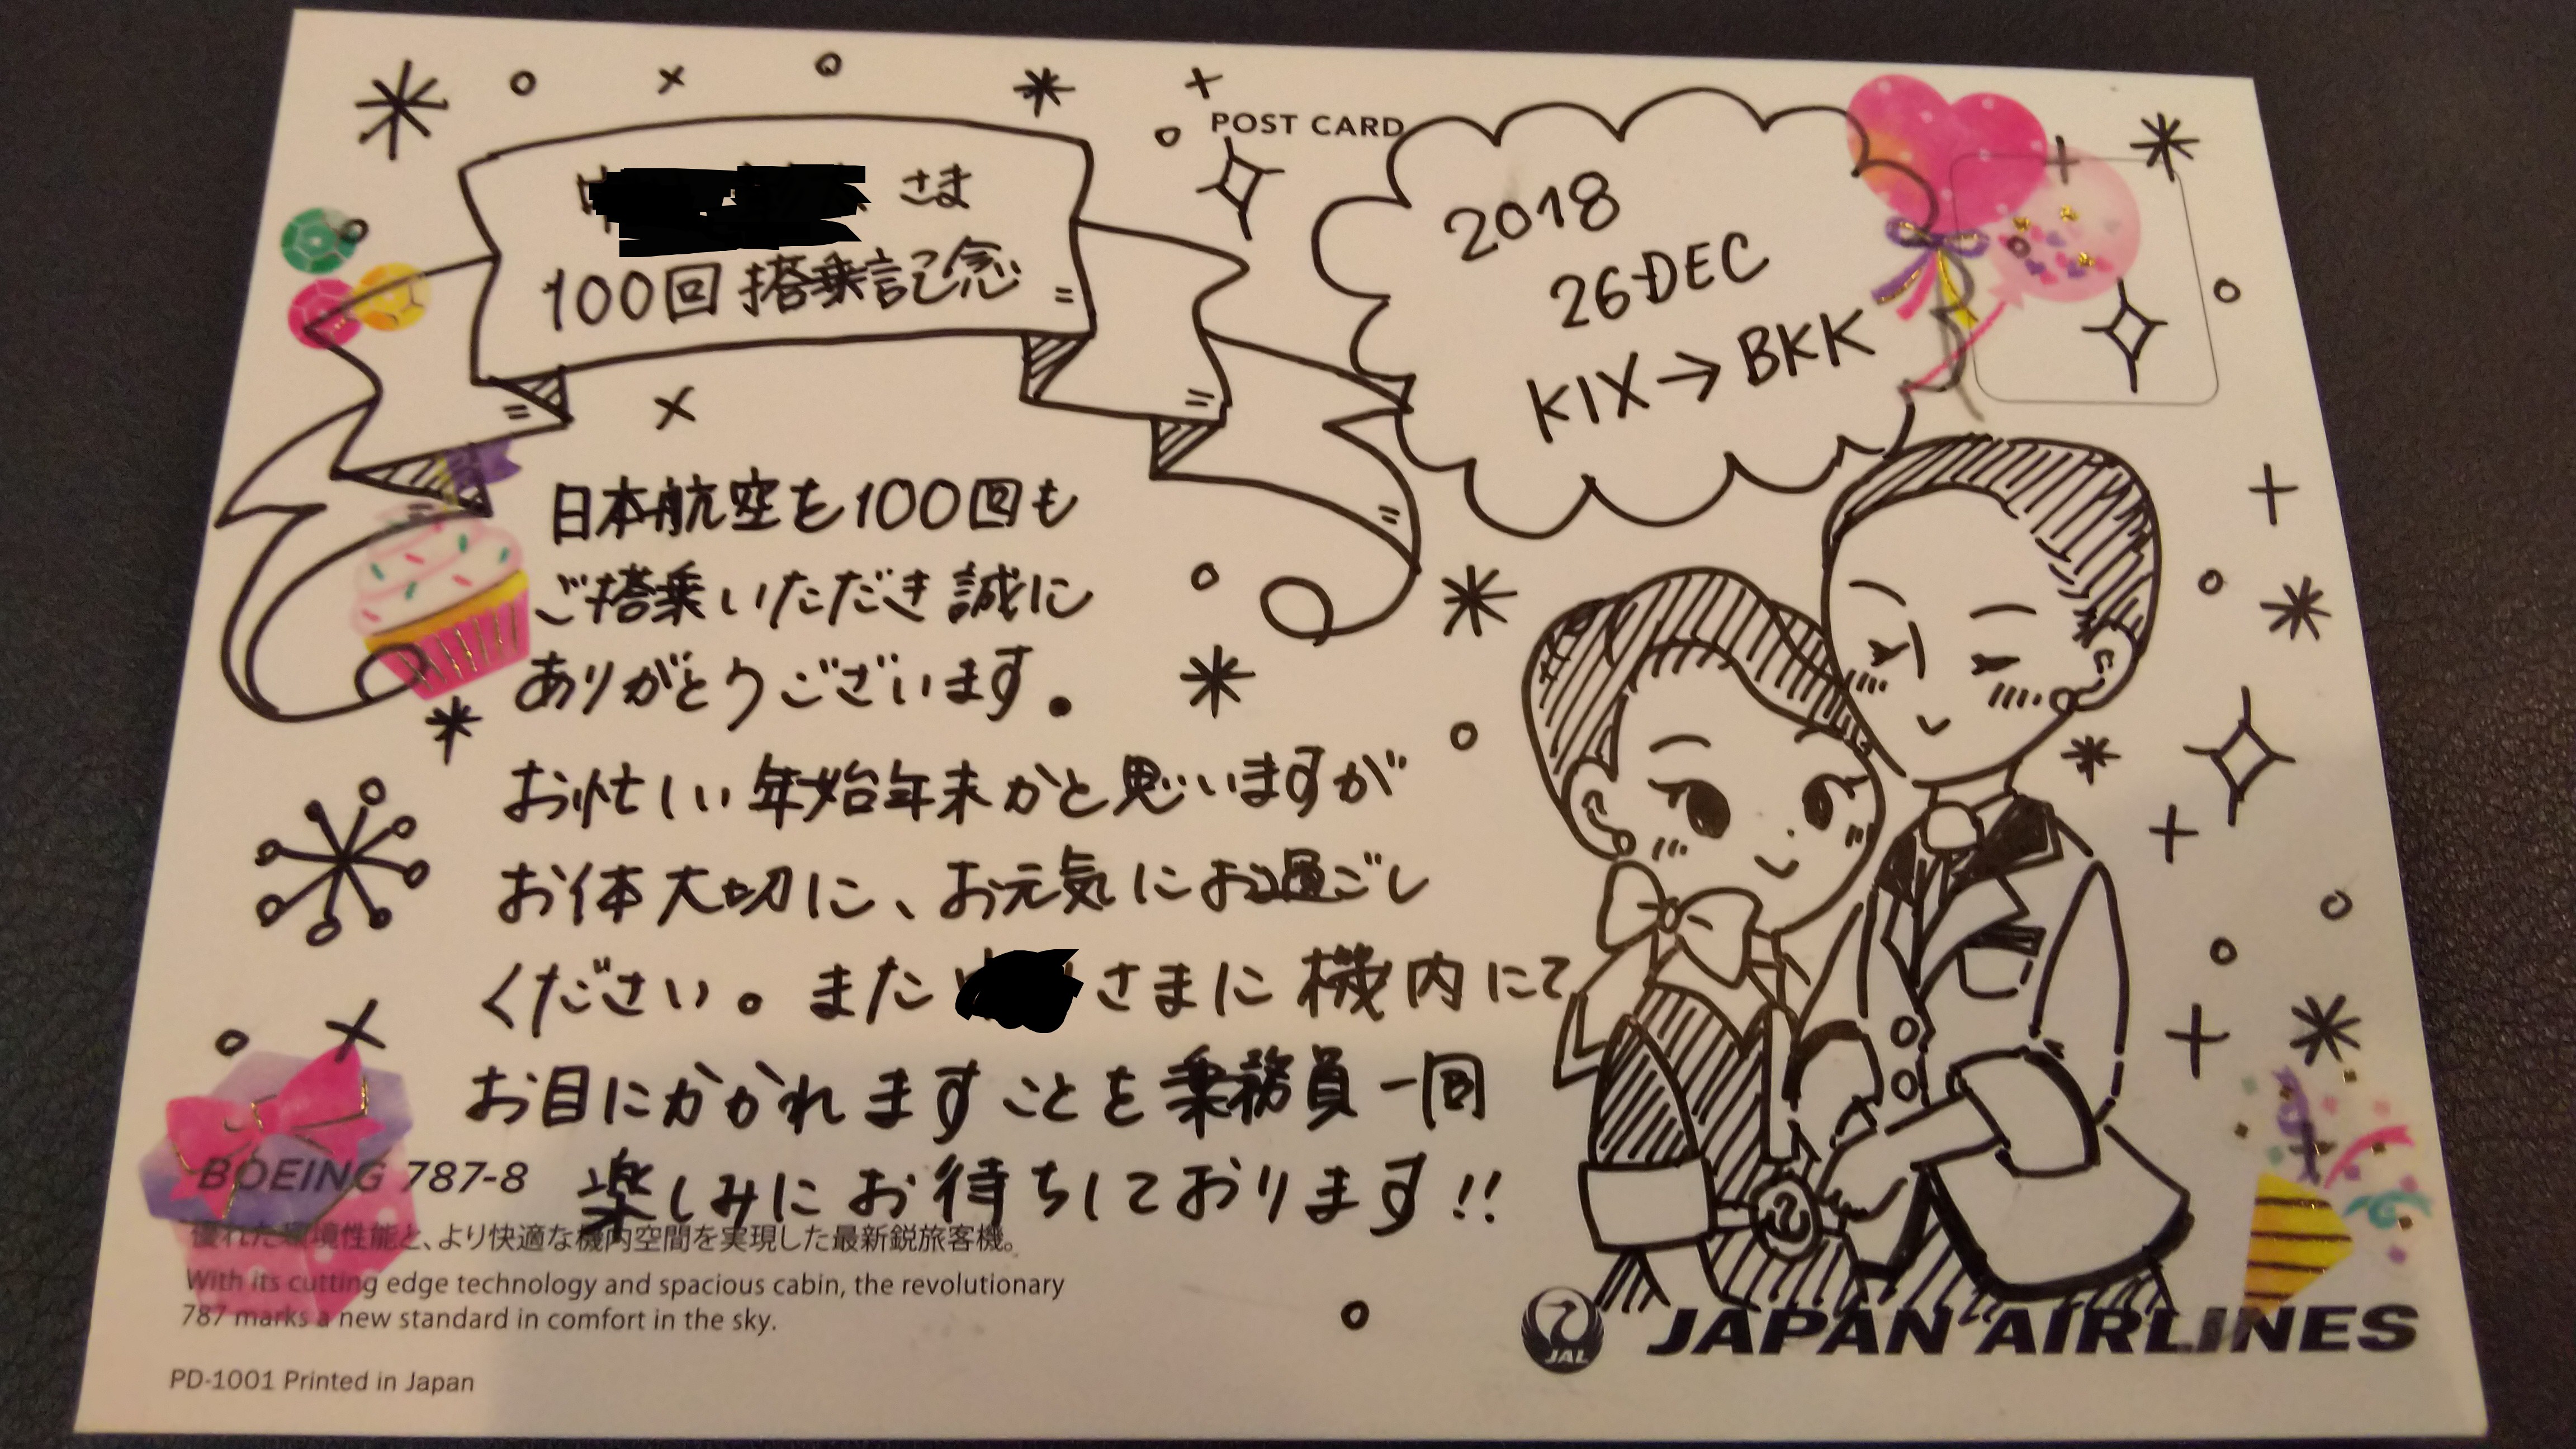 POST CARD
さま
100回搭乗記念
2018
26DEC
KIX→BKK
日本航空を100回も
ご搭乗いただき誠に
ありがとうございます.
お忙しい年始年末かと思いますが
お体大切に、お元気にお過ごし
ください。また さまに機内にて
お目にかかれますことを乗務員一同
楽しみにお待ちしております!!
BOEING 787-8
優れた環境性能と、より快適な機内空間を実現した最新鋭旅客機。
With its cutting edge technology and spacious cabin, the revolutionary
787 marks a new standard in comfort in the sky.
PD-1001 Printed in Japan
JAL
JAPAN AIRLINES